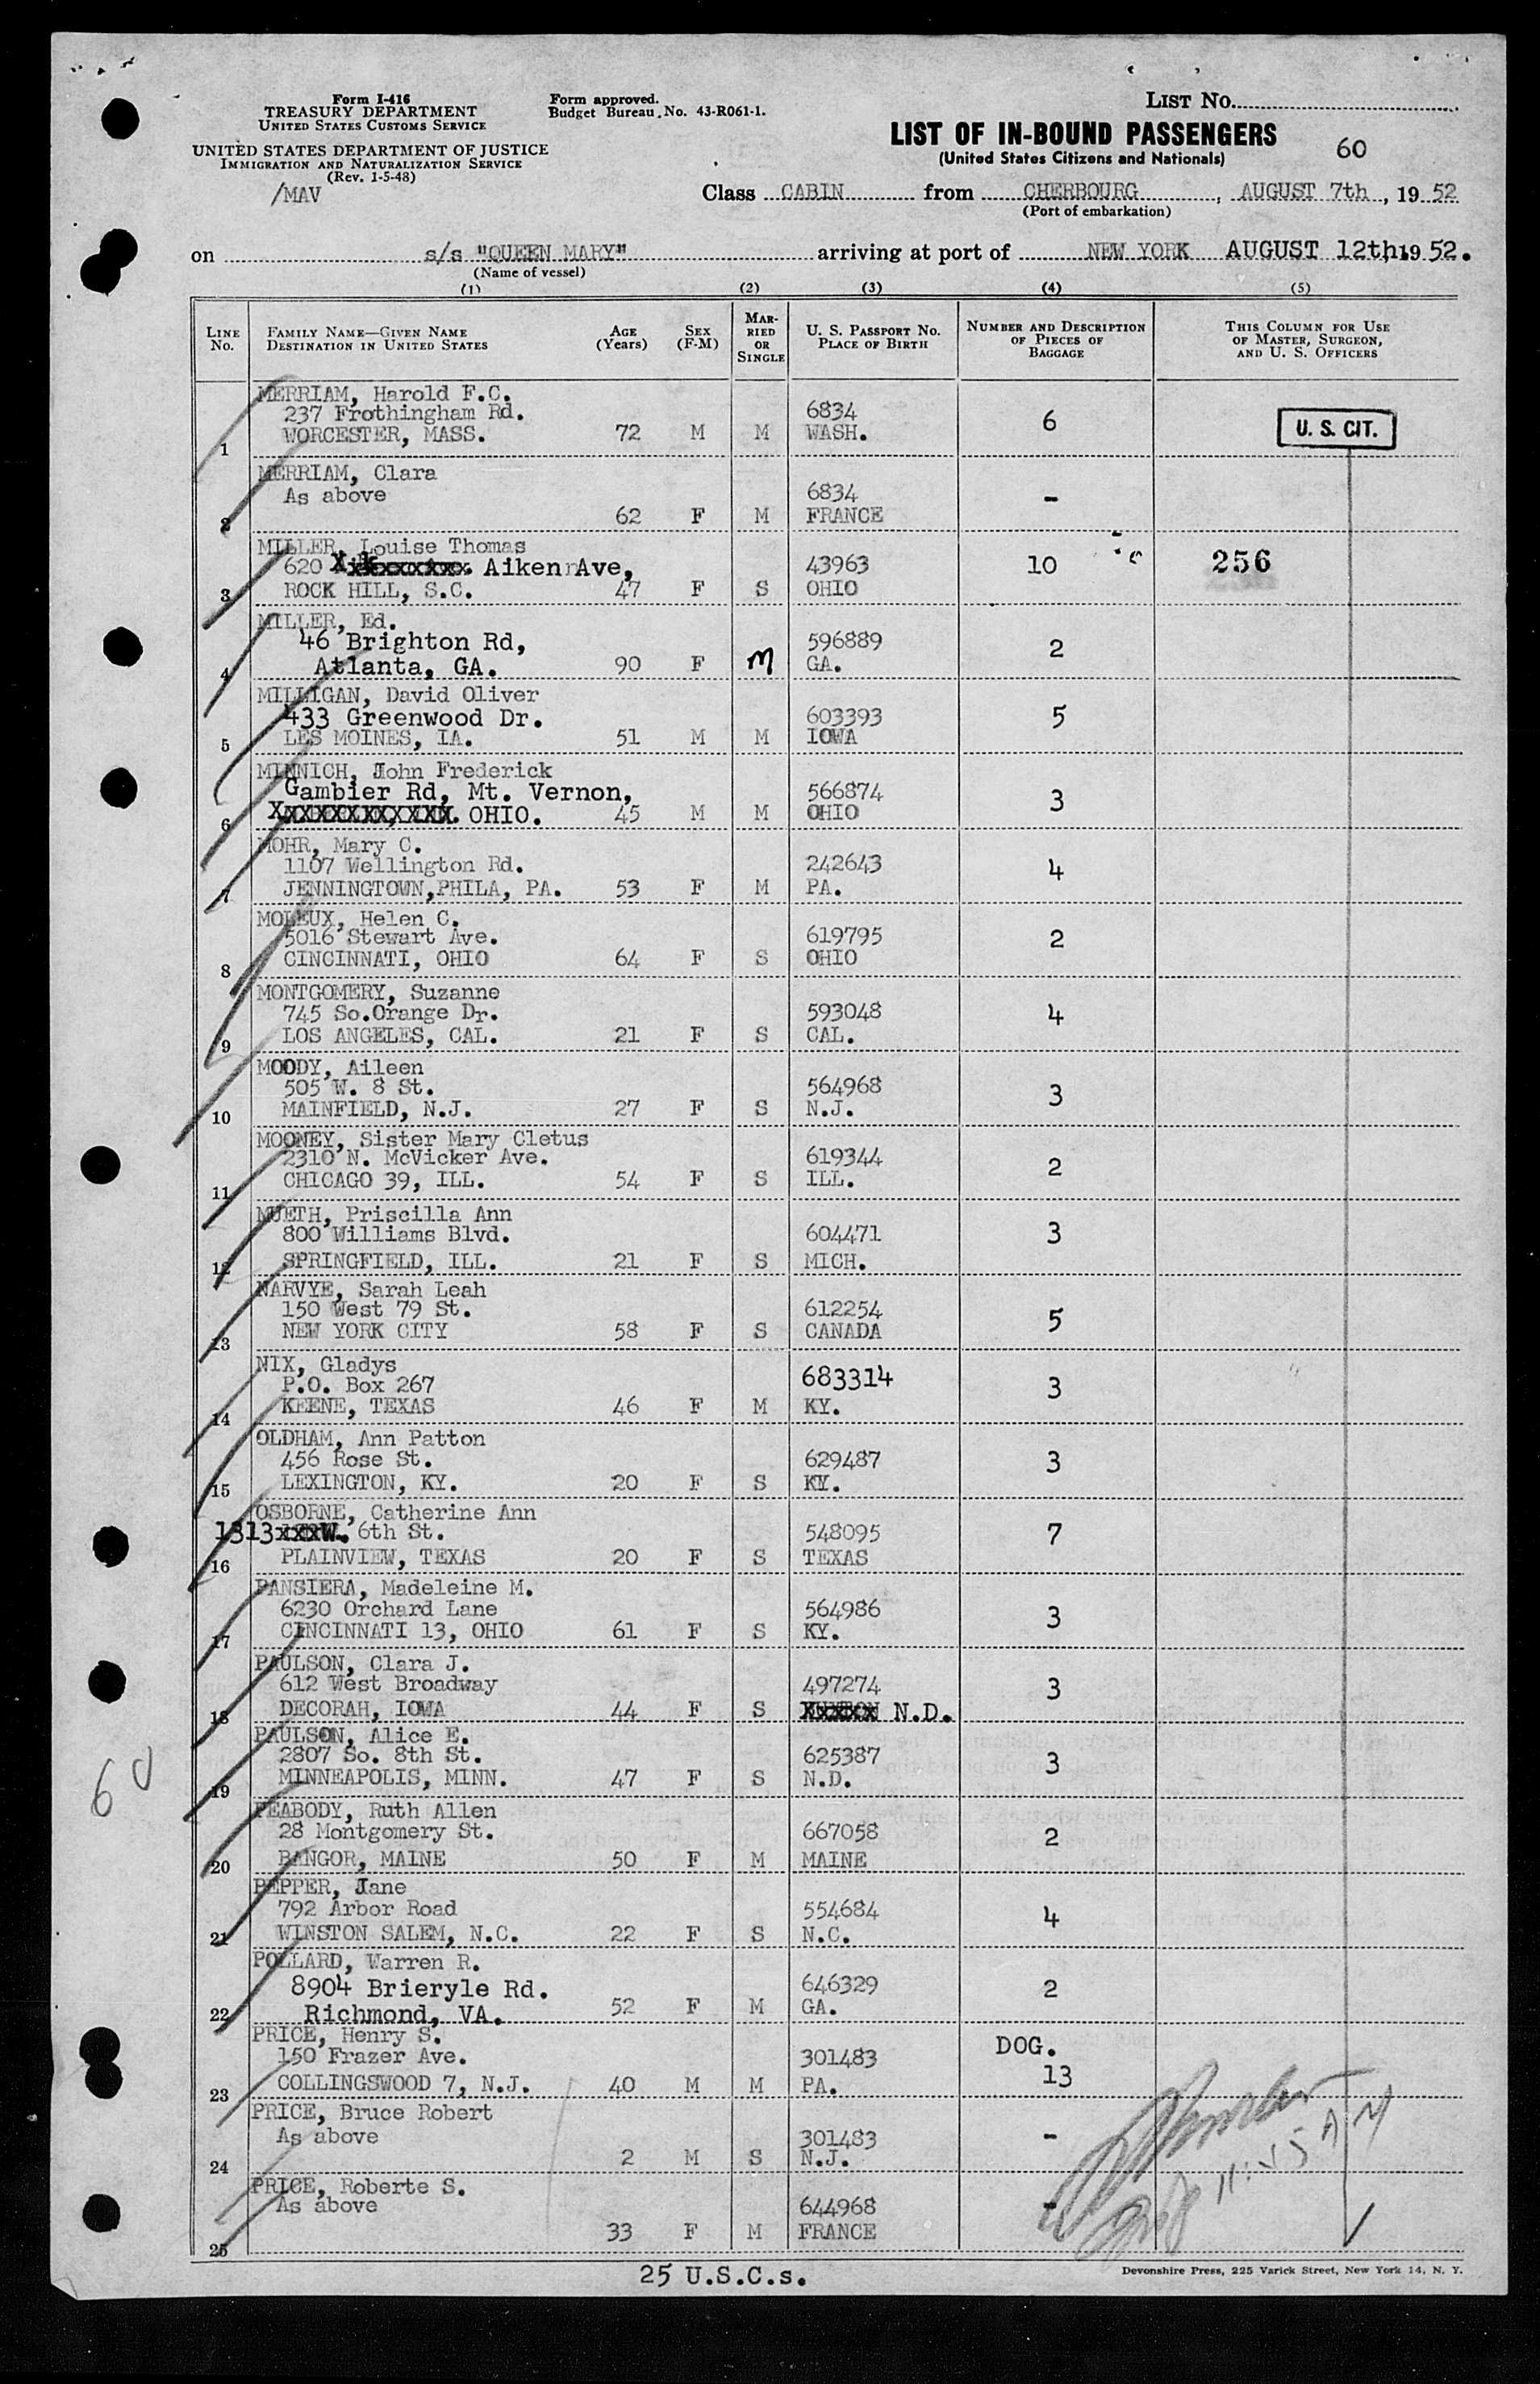 Form I-416
TREASURY DEPARTMENT
UNITED STATES CUSTOMS SERVICE
UNITED STATES DEPARTMENT OF JUSTICE
IMMIGRATION AND NATURALIZATION SERVICE
(Rev. 1-5-48)
/MAV
Form approved.
Budget Bureau No. 43-R061-1.
LIST NO.
LIST OF IN-BOUND PASSENGERS
(United States Citizens and Nationals)
60
Class CABIN from CHERBOURG, AUGUST 7th, 19 52
(Port of embarkation)
on s/s "QUEEN MARY" arriving at port of NEW YORK AUGUST 12th, 19 52.
(Name of vessel)
(1) (2) (3) (4) (5)
LINE NO. FAMILY NAME—GIVEN NAME DESTINATION IN UNITED STATES AGE (Years) SEX (F-M) MARRIED OR SINGLE U. S. PASSPORT NO. PLACE OF BIRTH NUMBER AND DESCRIPTION OF PIECES OF BAGGAGE THIS COLUMN FOR USE OF MASTER, SURGEON, AND U. S. OFFICERS
MERRIAM, Harold F.C.
237 Frothingham Rd. 6834 6 U. S. CIT.
1 WORCESTER, MASS. 72 M M WASH.
MERRIAM, Clara
As above 6834 -
2 62 F M FRANCE
MILLER, Louise Thomas
620 Aiken Ave, 43963 10 256
3 ROCK HILL, S.C. 47 F S OHIO
MILLER, Ed.
46 Brighton Rd, 596889 2
4 Atlanta, GA. 90 F M GA.
MILLIGAN, David Oliver
433 Greenwood Dr. 603393 5
5 LES MOINES, IA. 51 M M IOWA
MINNICH, John Frederick
Gambier Rd, Mt. Vernon, 566874 3
6 OHIO. 45 M M OHIO
MOHR, Mary C.
1107 Wellington Rd. 242643 4
7 JENNINGTOWN,PHILA, PA. 53 F M PA.
MOLEUX, Helen C.
5016 Stewart Ave. 619795 2
8 CINCINNATI, OHIO 64 F S OHIO
MONTGOMERY, Suzanne
745 So.Orange Dr. 593048 4
9 LOS ANGELES, CAL. 21 F S CAL.
MOODY, Aileen
505 W. 8 St. 564968 3
10 MAINFIELD, N.J. 27 F S N.J.
MOONEY, Sister Mary Cletus
2310 N. McVicker Ave. 619344 2
11 CHICAGO 39, ILL. 54 F S ILL.
MUETH, Priscilla Ann
800 Williams Blvd. 604471 3
12 SPRINGFIELD, ILL. 21 F S MICH.
NARVYE, Sarah Leah
150 West 79 St. 612254 5
13 NEW YORK CITY 58 F S CANADA
NIX, Gladys
P.O. Box 267 683314 3
14 KEENE, TEXAS 46 F M KY.
OLDHAM, Ann Patton
456 Rose St. 629487 3
15 LEXINGTON, KY. 20 F S KY.
OSBORNE, Catherine Ann
1313xxxW. 6th St. 548095 7
16 PLAINVIEW, TEXAS 20 F S TEXAS
PANSIERA, Madeleine M.
6230 Orchard Lane 564986 3
17 CINCINNATI 13, OHIO 61 F S KY.
PAULSON, Clara J.
612 West Broadway 497274 3
18 DECORAH, IOWA 44 F S N.D.
PAULSON, Alice E.
2807 So. 8th St. 625387 3
19 MINNEAPOLIS, MINN. 47 F S N.D.
PEABODY, Ruth Allen
28 Montgomery St. 667058 2
20 BANGOR, MAINE 50 F M MAINE
PEPPER, Jane
792 Arbor Road 554684 4
21 WINSTON SALEM, N.C. 22 F S N.C.
POLLARD, Warren R.
8904 Brieryle Rd. 646329 2
22 Richmond, VA. 52 F M GA.
PRICE, Henry S. DOG.
150 Frazer Ave. 301483 13
23 COLLINGSWOOD 7, N.J. 40 M M PA.
PRICE, Bruce Robert
As above 301483 -
24 2 M S N.J.
PRICE, Roberte S.
As above 644968 -
25 33 F M FRANCE
60
25 U.S.C.s.
Devonshire Press, 225 Varick Street, New York 14, N. Y.